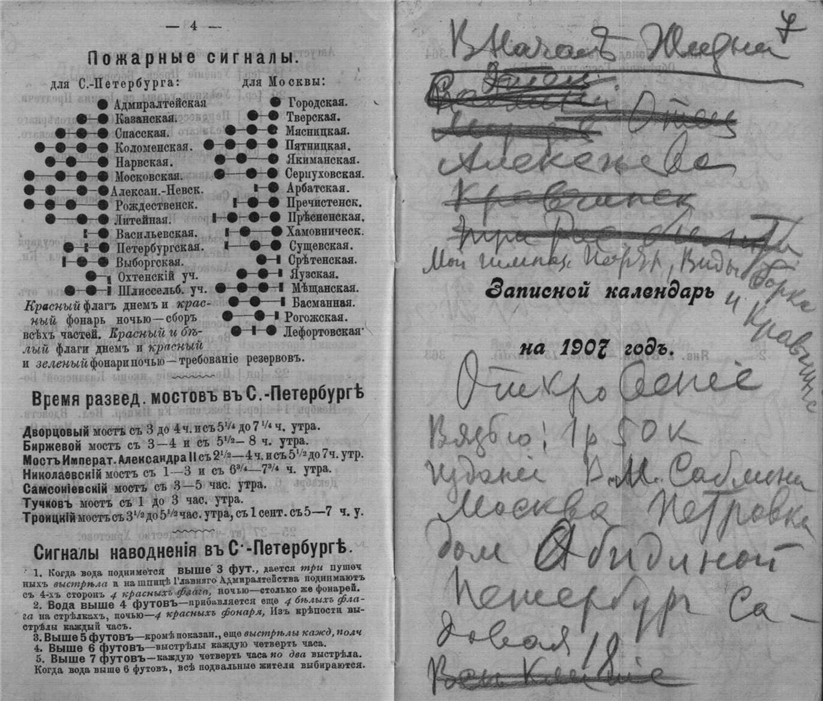 — 4 —
Пожарные сигналы.
для С.-Петербурга:
Адмиралтейская
Казанская.
Спасская.
Коломенская.
Нарвская.
Московская.
Алексан.-Невск.
Рождественск.
Литейная.
Васильевская.
Петербургская.
Выборгская.
Охтенскій уч.
Шлиссельб. уч.
Красный флагъ днемъ и крас-
ный фонарь ночью—сборъ
всѣхъ частей. Красный и бѣ-
лый флаги днемъ и красный
и зеленый фонари ночью—требованіе резервовъ.
для Москвы:
Городская.
Тверская.
Мясницкая.
Пятницкая.
Якиманская.
Серпуховская.
Арбатская.
Пречистенск.
Прѣсненская.
Хамовническ.
Сущевская.
Срѣтенская.
Яузская.
Мѣщанская.
Басманная.
Рогожская.
Лефортовская
Время развед. мостовъ въ С.-Петербургѣ
Дворцовый мостъ съ 3 до 4 ч. и съ 5¼ до 7¼ ч. утра.
Биржевой мостъ съ 3—4 и съ 5½—8 ч. утра.
Мостъ Императ. Александра II съ 2½—4 ч. и съ 5½ до 7 ч. утр.
Николаевскій мостъ съ 1—3 и съ 6¾—7¾ ч. утра.
Самсоніевскій мостъ съ 3—5 час. утра.
Тучковъ мостъ съ 1 до 3 час. утра.
Троицкій мостъ съ 3½ до 5½ час. утра, съ 1 сент. съ 5—7 ч. у.
Сигналы наводненія въ С.-Петербургѣ.
1. Когда вода поднимется выше 3 фут., дается три пушеч
ныхъ выстрѣла и на шпицѣ Главнаго Адмиралтейства поднимаютъ
съ 4-хъ сторонъ 4 красныхъ флага, ночью—столько же фонарей.
2. Вода выше 4 футовъ—прибавляется еще 4 бѣлыхъ фла-
га на стрѣлкахъ, ночью—4 красныхъ фонаря, Изъ крѣпости вы-
стрѣлы каждый часъ.
3. Выше 5 футовъ—кромѣ показан., еще выстрѣлы кажд. полч
4. Выше 6 футовъ—выстрѣлы каждую четверть часа.
5. Выше 7 футовъ—каждую четверть часа по два выстрѣла.
Когда вода выше 6 футовъ, всѣ подвальные жители выбираются.
В Началѣ Жизни
Отец
Алексеева
Мои
Записной календарь
на 1907 годъ.
Откровеніе
1 р 50 к
изданіе В. М. Саблина
Москва Петровка
дом Обидиной
Петербург Са-
довая 18